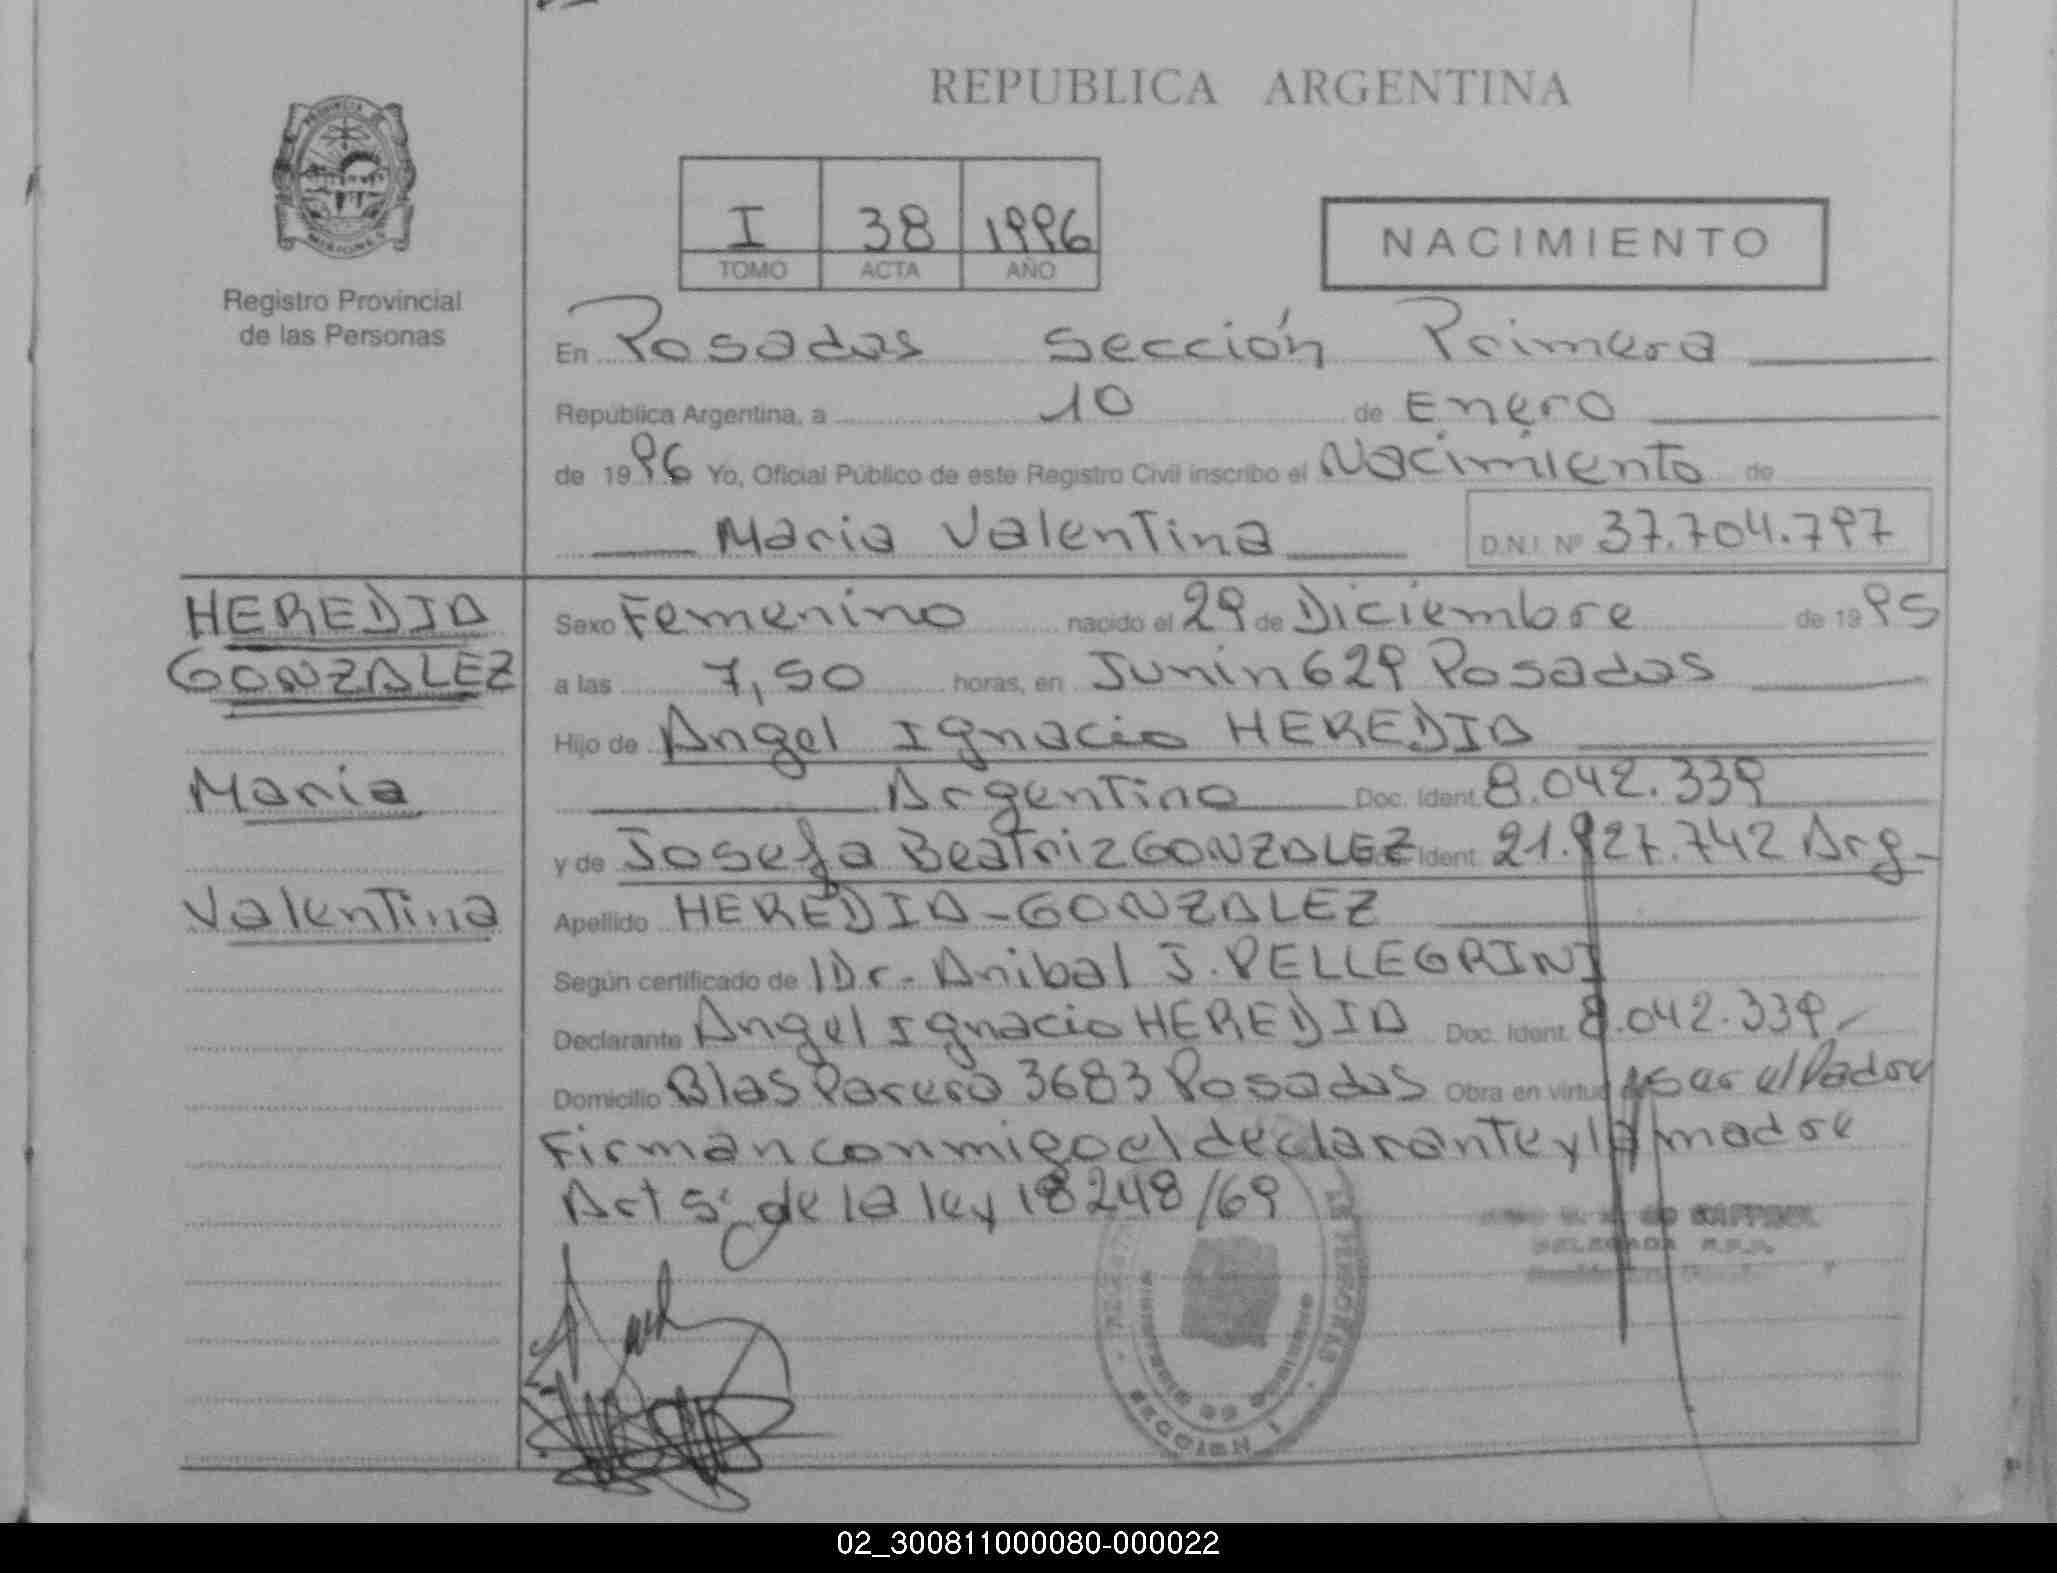 REPUBLICA ARGENTINA
PROVINCIA DE
MISIONES
Registro Provincial
de las Personas
I 38 1996
TOMO ACTA AÑO
NACIMIENTO
En Posadas Sección Primera
República Argentina, a 10 de Enero
de 1996 Yo, Oficial Público de este Registro Civil inscribo el Nacimiento de
Maria Valentina D.N.I. Nº 37.704.797
HEREDIA
GONZALEZ
Maria
Valentina
Sexo Femenino nacido el 29 de Diciembre de 1995
a las 7,50 horas, en Junin 629 Posadas
Hijo de Angel Ignacio HEREDIA
Argentino Doc. Ident. 8.042.339
y de Josefa Beatriz GONZALEZ Ident. 21.927.742 Arg-
Apellido HEREDIA-GONZALEZ
Según certificado de Dr. Anibal J. PELLEGRINI
Declarante Angel Ignacio HEREDIA Doc. Ident. 8.042.339
Domicilio Blas Parera 3683 Posadas Obra en virtud de ser el Padre
Firman conmigo el declarante y la madre
Art 5º de la ley 18248/69
DELEGADA R.P.P.
MINISTERIO DE GOBIERNO
SECCION I
02_300811000080-000022